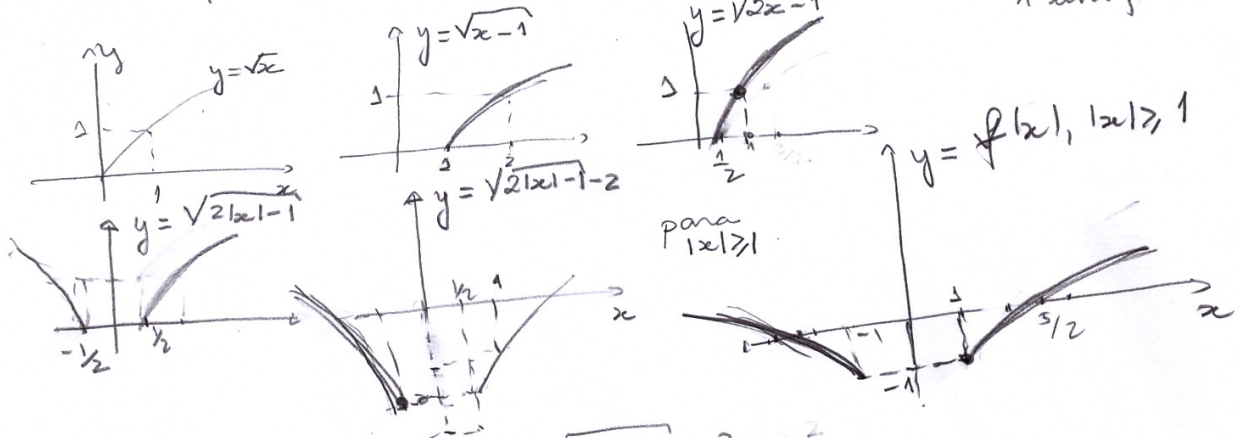 y
y = √x
1
1
x
y = √x-1
1
1
2
y = √2x-1
1
1/2
1
3/2
y = √2|x|-1
-1/2
1/2
y = √2|x|-1-2
1/2
1
x
para
|x|≥1
y = f|x|, |x|≥1
1
-1
5/2
-1
x